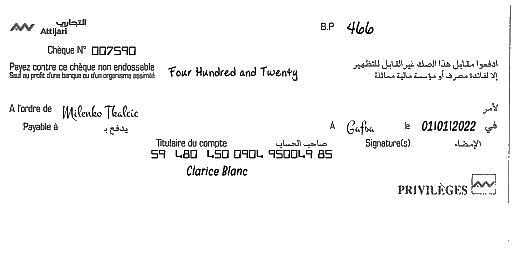 التجاري
Attijari
B.P 466
Chèque N° 007590
Payez contre ce chèque non endossable
Sauf au profit d'une banque ou d'un organisme assimilé
Four Hundred and Twenty
ادفعوا مقابل هذا الصك غير القابل للتظهير
إلا لفائدة مصرف أو مؤسسة مالية مماثلة
A l'ordre de Milenko Tkalcic لأمر
Payable à يدفع بـ A Gafsa le 01/01/2022 في
Titulaire du compte صاحب الحساب Signature(s) الإمضاء
59 480 450 0904 950049 85
Clarice Blanc
PRIVILÈGES